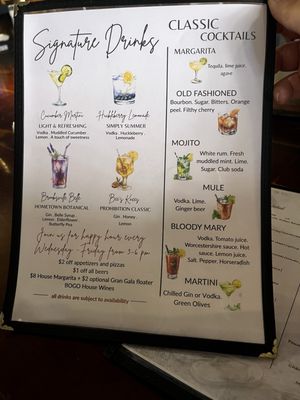 Signature Drinks
Cucumber Martini
LIGHT & REFRESHING
Vodka . Muddled Cucumber .
Lemon . A touch of sweetness
Huckleberry Lemonade
SIMPLY SUMMER
Vodka . Huckleberry .
Lemonade
Belle
HOMETOWN BOTANICAL
Gin . Belle Syrup .
Lemon . Elderflower .
Butterfly Pea
Bee's Knees
PROHIBITION CLASSIC
Gin . Honey .
Lemon
Join us for happy hour every
Wednesday - Friday from 3-6 pm
$2 off appetizers and pizzas
$1 off all beers
$8 House Margarita + $2 optional Gran Gala floater
BOGO House Wines
all drinks are subject to availability
CLASSIC
COCKTAILS
MARGARITA
Tequila, lime juice,
agave
OLD FASHIONED
Bourbon. Sugar. Bitters. Orange
peel. Filthy cherry
MOJITO
White rum. Fresh
muddled mint. Lime.
Sugar. Club soda
MULE
Vodka. Lime.
Ginger beer
BLOODY MARY
Vodka. Tomato juice.
Worcestershire sauce. Hot
sauce. Lemon juice.
Salt. Pepper. Horseradish
MARTINI
Chilled Gin or Vodka.
Green Olives